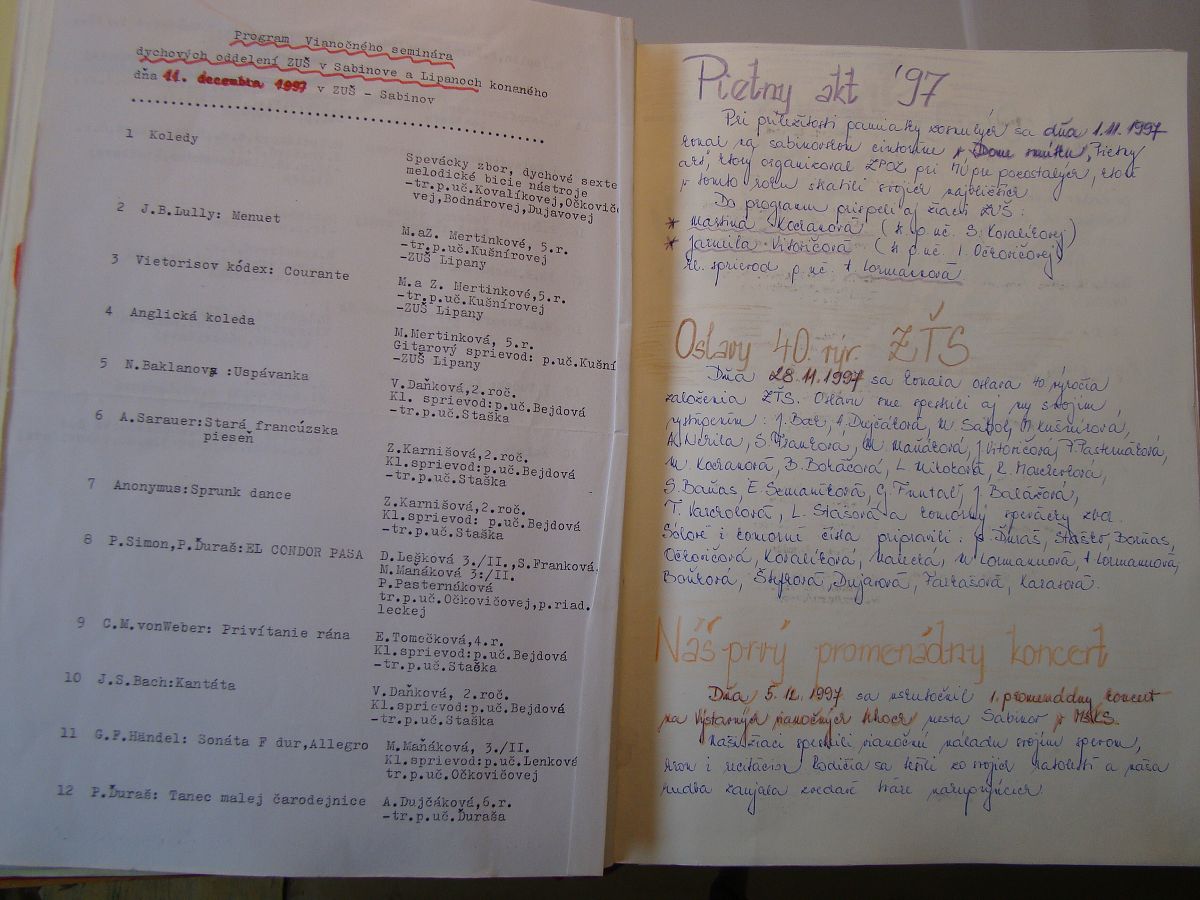 Program Vianočného seminára
dychových oddelení ZUŠ v Sabinove a Lipanoch konaného
dňa 11. decembra 1997 v ZUŠ - Sabinov
1 Koledy
Spevácky zbor, dychové sexte
melodické bicie nástroje
-tr.p.uč.Kovalíkovej,Očkovič
vej,Bodnárovej,Dujavovej
2 J.B.Lully: Menuet
M.aZ. Mertinkové, 5.r.
-tr.p.uč.Kušnírovej
-ZUŠ Lipany
3 Vietorisov kódex: Courante
M.a Z. Mertinkové,5.r.
-tr.p.uč.Kušnírovej
-ZUŠ Lipany
4 Anglická koleda
M.Mertinková, 5.r.
Gitarový sprievod: p.uč.Kušní
-ZUŠ Lipany
5 N.Baklanova :Uspávanka
V.Daňková,2.roč.
Kl. sprievod:p.uč.Bejdová
-tr.p.uč.Staška
6 A.Sarauer:Stará francúzska
pieseň
Z.Karnišová,2.roč.
Kl.sprievod:p.uč.Bejdová
-tr.p.uč.Staška
7 Anonymus:Sprunk dance
Z.Karnišová,2.roč.
Kl.sprievod: p.uč.Bejdová
-tr.p.uč.Staška
8 P.Simon,P.Ďuraš:EL CONDOR PASA
D.Lešková 3./II.,S.Franková.
M.Maňáková 3:/II.
P.Pasternáková
tr.p.uč.Očkovičovej,p.riad.
leckej
9 C.M.vonWeber: Privítanie rána
E.Tomečková,4.r.
Kl.sprievod:p.uč.Bejdová
-tr.p.uč.Staška
10 J.S.Bach:Kantáta
V.Daňková, 2.roč.
Kl.sprievod:p.uč.Bejdová
-tr.p.uč.Staška
11 G.F.Händel: Sonáta F dur,Allegro
M.Maňáková, 3./II.
Kl.sprievod:p.uč.Lenková
tr.p.uč.Očkovičovej
12 P.Ďuraš: Tanec malej čarodejnice
A.Dujčáková,6.r.
-tr.p.uč.Ďuraša
Pietny akt '97
Pri príležitosti pamiatky zosnulých sa dňa 1.11.1997
konal na sabinovskom cintoríne v Dome smútku, Pietny
akt, ktorý organizoval ZPOZ pri pozostalých, ktorí
v tomto roku stratili svojich najbližších.
Do programu prispeli aj žiaci ZUŠ:
* Martina Kočanová (z p. uč. S. Kovalíkovej)
* Jarmila Vitovičová (z p. uč. Očkovičovej)
kl. sprievod p. uč. Lormanová
Oslavy 40. výr. ZŤS
Dňa 28.11.1997 sa konala oslava 40. výročia
založenia ZŤS. Oslavu sme spestrili aj my svojím
vystúpením: J. Bač, A. Dujčáková, M. Sabol, M. Kušnírová,
S. Franková, M. Maňáková, J. Vitovičová, P. Pasternáková,
M. Kočanová, B. Boháčová,
S. Baňas, E. Semaníková, J. Balážová,
L. Stašová a komorný spevácky zbor.
Sólové i komorné čísla pripravili: p. Ďuraš, Staško, Bomňas,
Očkovičová, Kovalíková, Malecká, M. Lormanová, Lormanová,
Dujavová, Farkašová, Karasová.
Náš prvý promenádny koncert
Dňa 5.12.1997 sa uskutočnil 1. promenádny koncert
na Výstavných vianočných trhoch mesta Sabinov v MsKS.
Naši žiaci spestrili vianočnú náladu svojím spevom,
hrou i recitáciou. Rodičia sa tešili zo svojich ratolestí a naša
hudba zaujala nakupujúcich.